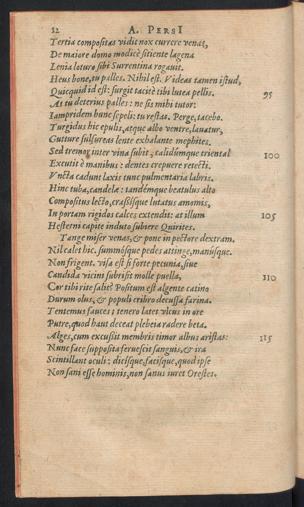 12 A. PERSI
Tertia compositas vidit nox currere venas,
De maiore domo modicè sitiente lagena
Lenia loturo sibi Surrentina rogauit.
Heus bone, tu palles. Nihil est. Videas tamen istud,
Quicquid id est: surgit tacitè tibi lutea pellis. 95
At tu deterius palles: ne sis mihi tutor:
Iampridem hunc sepeli: tu restas. Perge, tacebo.
Turgidus hic epulis, atque albo ventre, lauatur,
Gutture sulfureas lentè exhalante mephites.
Sed tremor inter vina subit, calidúmque triental 100
Excutit è manibus: dentes crepuere retecti.
Vncta cadunt laxis tunc pulmentaria labris.
Hinc tuba, candelæ: tandémque beatulus alto
Compositus lecto, crassísque lutatus amomis,
In portam rigidos calces extendit: at illum 105
Hesterni capite induto subiere Quirites.
Tange miser venas, & pone in pectore dextram.
Nil calet hîc. summósque pedes attinge, manúsque.
Non frigent. visa est si forte pecunia, siue
Candida vicini subrisit molle puella, 110
Cor tibi rite salit? Positum est algente catino
Durum olus, & populi cribro decussa farina.
Tentemus fauces: tenero latet vlcus in ore
Putre, quod haut deceat plebeia radere beta.
Alges, cum excussit membris timor albus aristas: 115
Nunc face supposita feruescit sanguis, & ira
Scintillant oculi: dicísque, facísque, quod ipse
Non sani esse hominis, non sanus iuret Orestes.